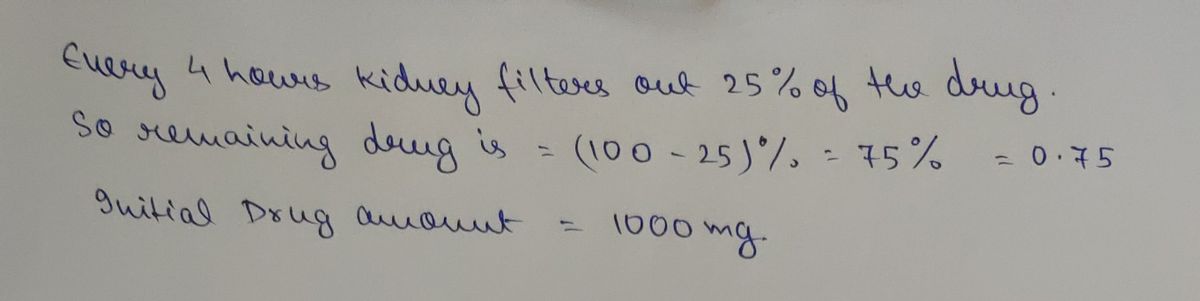 Every 4 hours kidney filters out 25% of the drug.
So remaining drug is = (100 - 25)% = 75% = 0.75
Initial Drug amount = 1000 mg.